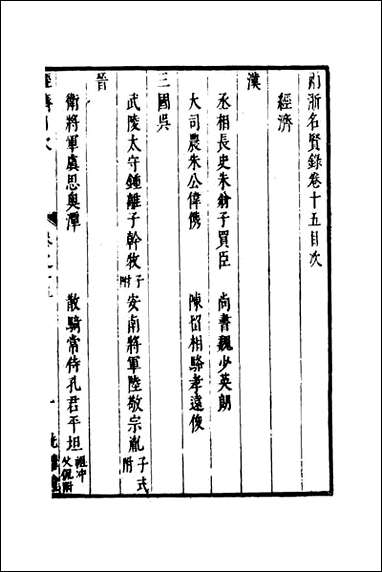 兩浙名賢錄卷十五目次
經濟
漢
丞相長史朱翁子買臣 尚書魏少英朗
大司農朱公偉儁 陳留相駱孝遠俊
三國吳
武陵太守鍾離子幹牧子附 安南將軍陸敬宗胤子式附
晉
衛將軍虞思奧潭 散騎常侍孔君平坦祖冲父侃附
目次